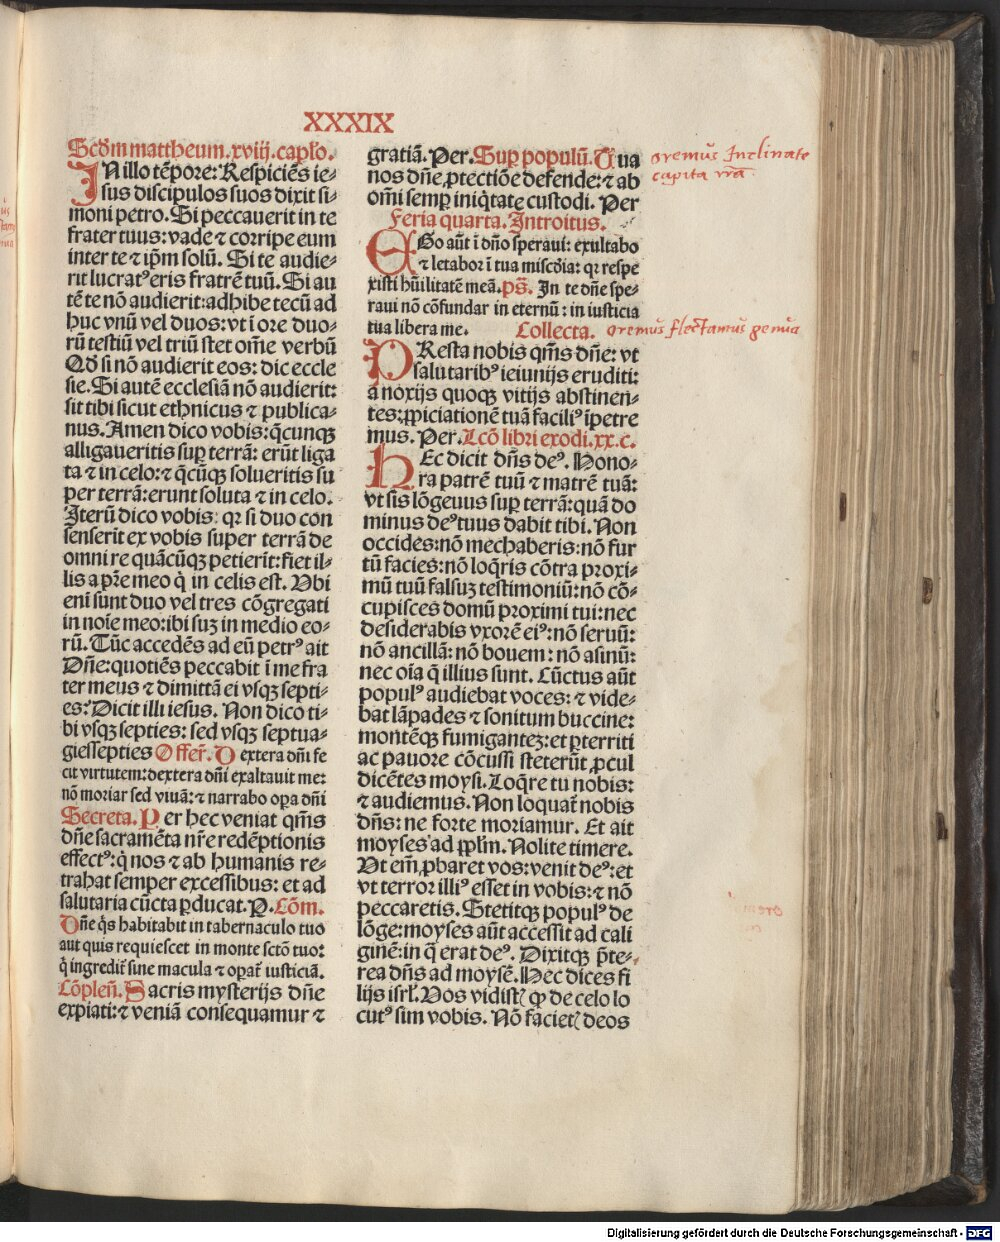 XXXIX
Scd̄m mattheum.xviij.capl̄o.
IN illo tēpore: Respiciēs ie⸗
sus discipulos suos dixit si⸗
moni petro. Si peccauerit in te
frater tuus: vade ⁊ corripe eum
inter te ⁊ ip̄m solū. Si te audie⸗
rit lucratꝰ eris fratrē tuū. Si au
tē te nō audierit: adhibe tecū ad
huc vnū vel duos: vt ī ore duo⸗
rū testiū vel triū stet om̄e verbū
Qd̄ si nō audierit eos: dic eccle
sie. Si autē ecclesiā nō audierit:
sit tibi sicut ethnicus ⁊ publica⸗
nus. Amen dico vobis: q̄cunqꝫ
alligaueritis suꝑ terrā: erūt liga
ta ⁊ in celo: ⁊ q̄cūqꝫ solueritis su
per terrā: erunt soluta ⁊ in celo.
Iterū dico vobis: qꝛ si duo con
senserīt ex vobis super terrā de
omni re quācūqꝫ petierīt: fiet il⸗
lis a pr̄e meo q̄ in celis est. Vbi
enī sunt duo vel tres cōgregati
in noīe meo: ibi suꝫ in medio eo⸗
rū. Tūc accedēs ad eū petrꝰ ait
Dn̄e: quotiēs peccabit ī me fra
ter meus ⁊ dimittā ei vsqꝫ septi⸗
es? Dicit illi iesus. Non dico ti⸗
bi vsqꝫ septies: sed vsqꝫ septua⸗
giessepties Offer̄. Dextera dn̄i fe
cit virtutem: dextera dn̄i exaltauit me:
nō moriar sed viuā: ⁊ narrabo oꝑa dn̄i
Secreta. Per hec veniat qm̄s
dn̄e sacramēta nr̄e redēptionis
effectꝰ: q̄ nos ⁊ ab humanis re⸗
trahat semper excessibus: et ad
salutaria cūcta ꝑducat. P. Cōm.
Dn̄e q̄s habitabit in tabernaculo tuo
aut quis requiescet in monte sctō tuo:
q̄ ingredit̄ sine macula ⁊ oꝑat̄ iusticiā.
Cōplen̄. Sacris mysterijs dn̄e
expiati: ⁊ veniā consequamur ⁊
gratiā. Per. Suꝑ populū. Tua
nos dn̄e ꝓtectiōe defende: ⁊ ab
om̄i semꝑ iniq̄tate custodi. Per
Feria quarta. Introitus.
EGo aūt ī dn̄o speraui: exultabo
⁊ letabor ī tua miscd̄ia: qꝛ respe
xisti hūilitatē meā. ps̄. In te dn̄e spe⸗
raui nō cōfundar in eternū: in iusticia
tua libera me. Collecta.
PResta nobis qm̄s dn̄e: vt
salutaribꝰ ieiunijs eruditi:
a noxijs quoqꝫ vitijs abstinen⸗
tes: ꝓpiciationē tuā faciliꝰ īpetre
mus. Per. Lcō libri exodi.xx.c.
HEc dicit dn̄s deꝰ. Hono⸗
ra patrē tuū ⁊ matrē tuā:
vt sis lōgeuus suꝑ terrā: quā do
minus deꝰ tuus dabit tibi. Non
occides: nō mechaberis: nō fur
tū facies: nō loq̄ris cōtra proxi⸗
mū tuū falsuꝫ testimoniū: nō cō⸗
cupisces domū proximi tui: nec
desiderabis vxorē eiꝰ: nō seruū:
nō ancillā: nō bouem: nō asinū:
nec oīa q̄ illius sunt. Cūctus aūt
populꝰ audiebat voces: ⁊ vide⸗
bat lāpades ⁊ sonitum buccine:
montēqꝫ fumigantez: et ꝑterriti
ac pauore cōcussi steterūt ꝓcul
dicētes moysi. Loq̄re tu nobis:
⁊ audiemus. Non loquat̄ nobis
dn̄s: ne forte moriamur. Et ait
moyses ad ppl̄m. Nolite timere.
Vt em̄ ꝓbaret vos: venit deꝰ: et
vt terror illiꝰ esset in vobis: ⁊ nō
peccaretis. Stetitqꝫ populꝰ de
lōge: moyses aūt accessit ad cali
ginē: in q̄ erat deꝰ. Dixitqꝫ p̄te⸗
rea dn̄s ad moysē. Hec dices fi
lijs isrl̄. Vos vidistꝭ qꝙ de celo lo
cutꝰ sim vobis. Nō facietꝭ deos
oremus Inclinate
capita vr̄a
oremus flectamus genua
Digitalisierung gefördert durch die Deutsche Forschungsgemeinschaft - DFG